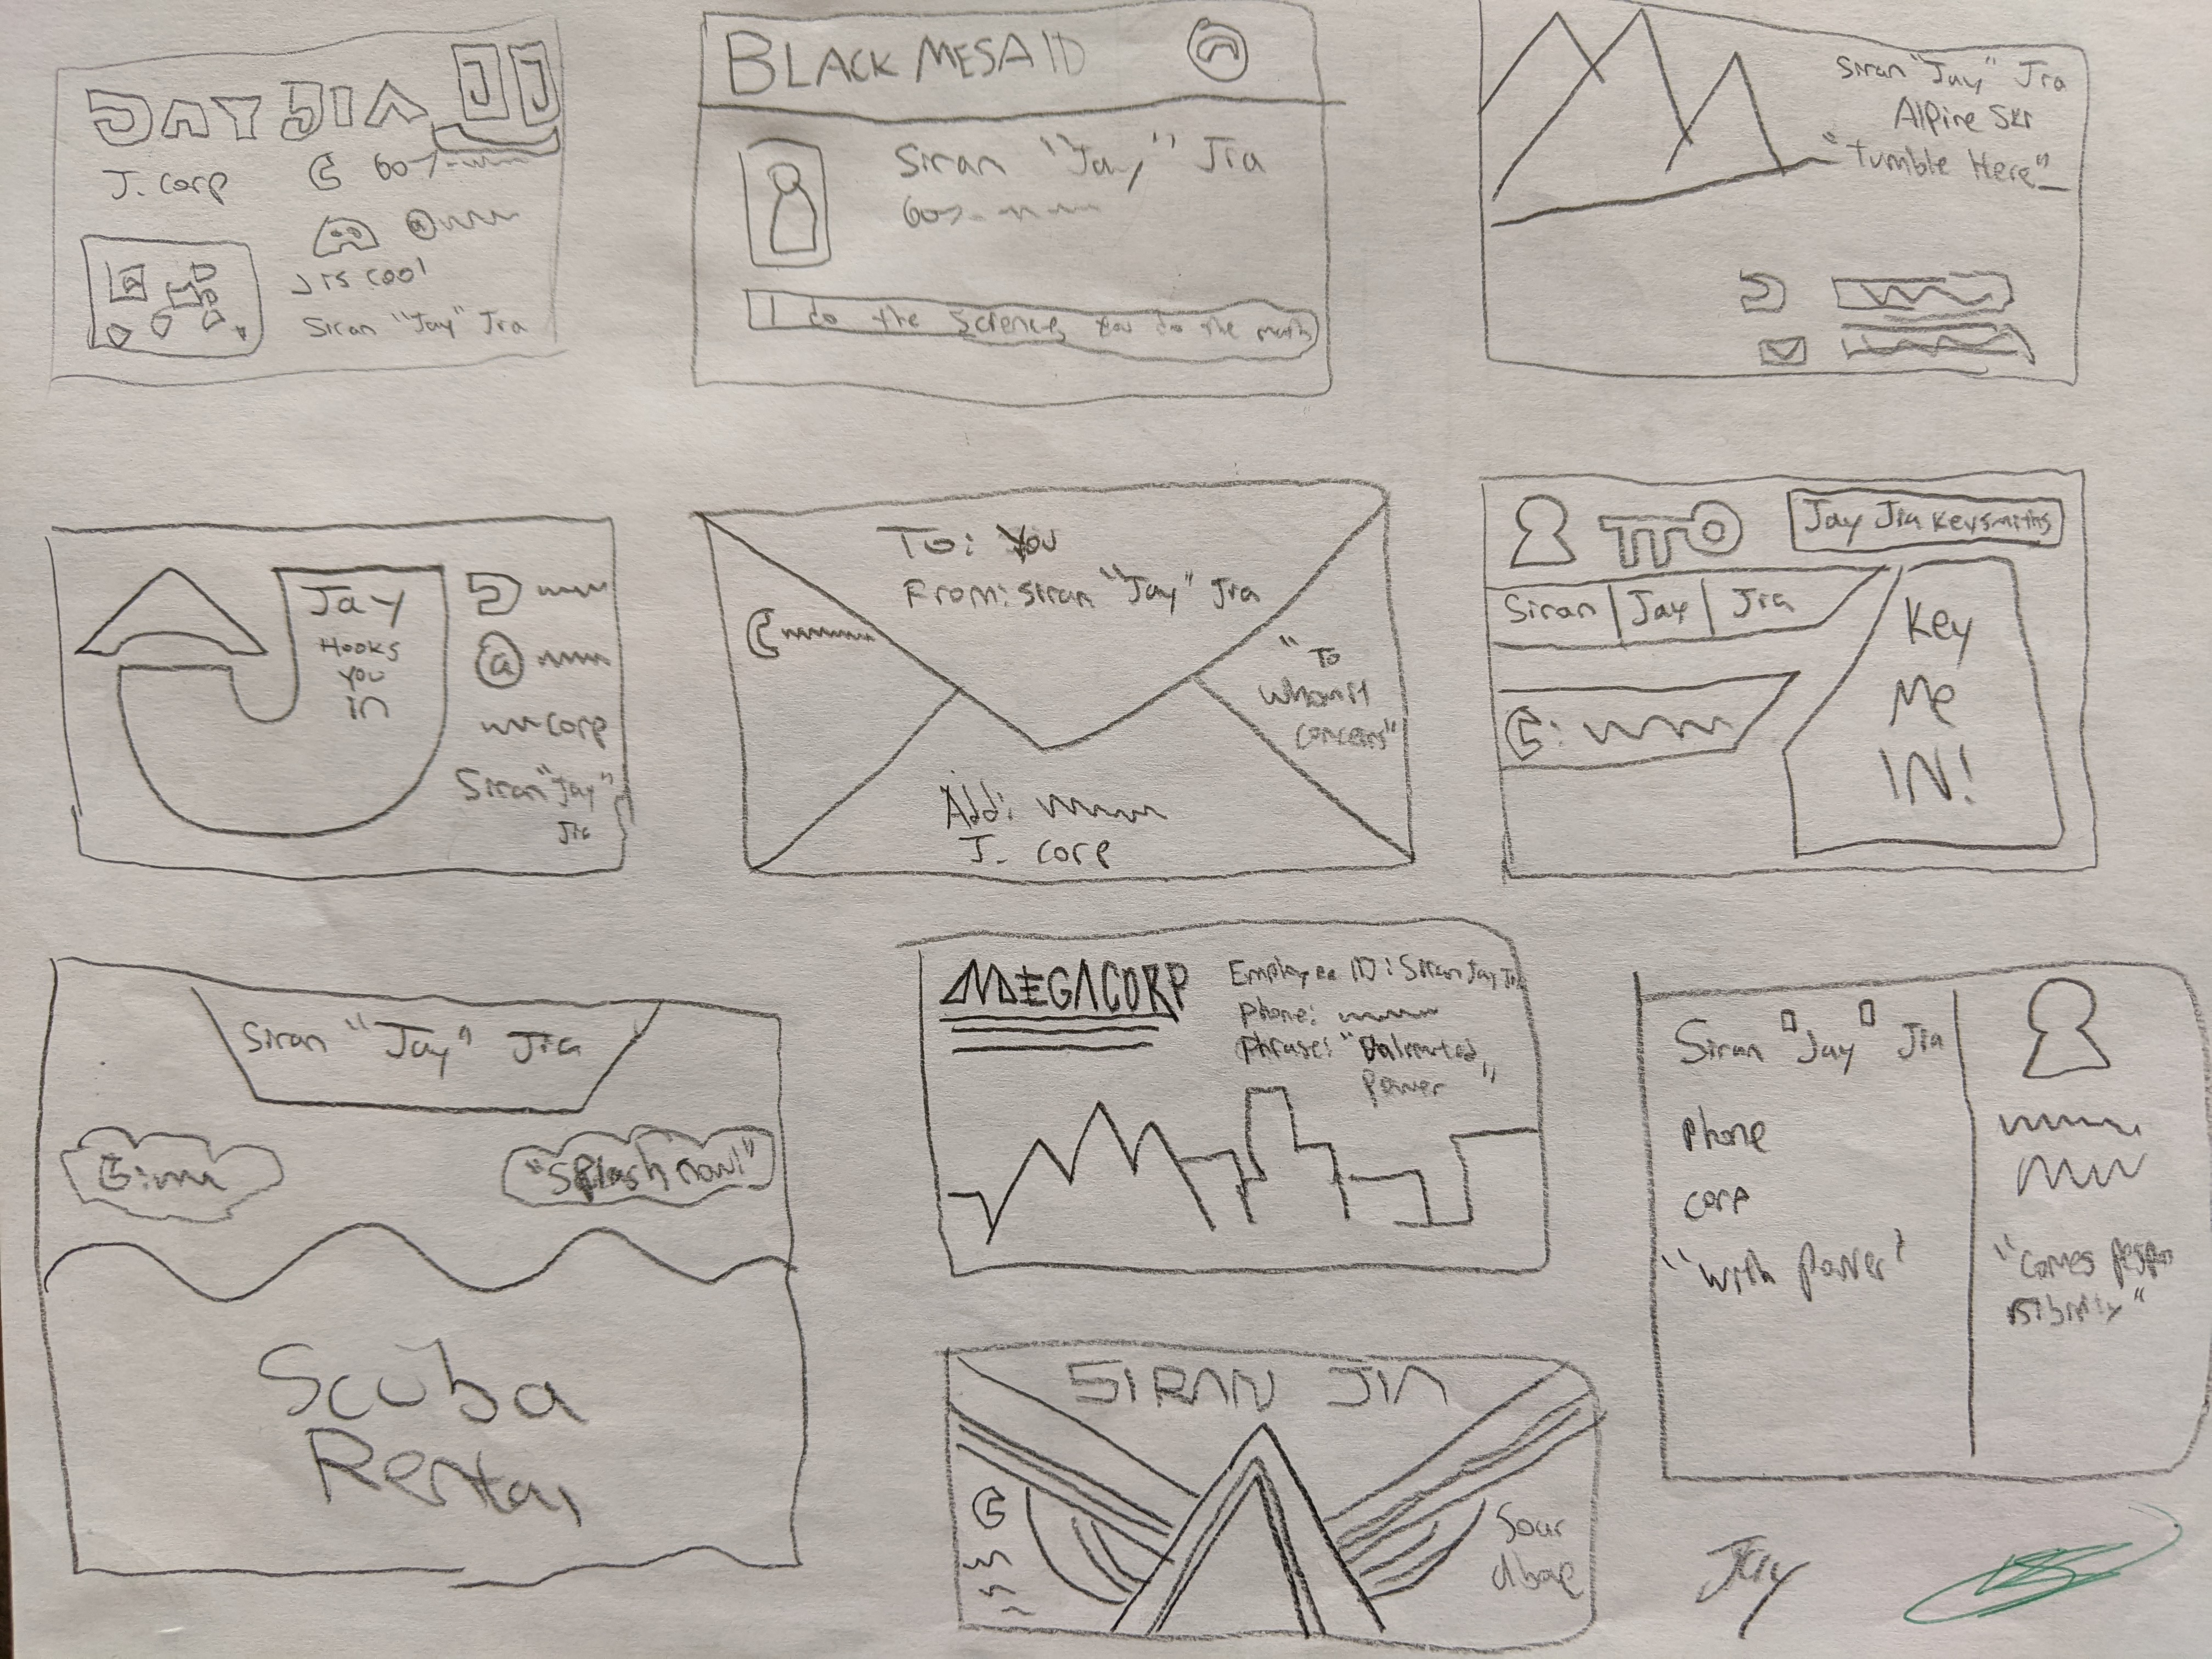 JAY JIA JJ
J. corp
607-
@
J is cool
Siran "Jay" Jia
BLACK MESA ID
Siran "Jay" Jia
607-
I do the Science, you do the math
Siran "Jay" Jia
Alpine Ski
"Tumble Here"
Jay
Hooks
you
in
@
corp
Siran "Jay"
Jia
To: You
From: Siran "Jay" Jia
"To
whom it
concerns"
Add:
J. corp
Jay Jia Keysmiths
Siran | Jay | Jia
Key
Me
IN!
Siran "Jay" Jia
"Splash now!"
Scuba
Rental
MEGACORP
Employee ID: Siran Jay Jia
Phone:
Phrase:
Power"
Siran "Jay" Jia
Phone
corp
"With power"
"comes respon
sibility"
SIRAN JIA
Soar
Above
Jay